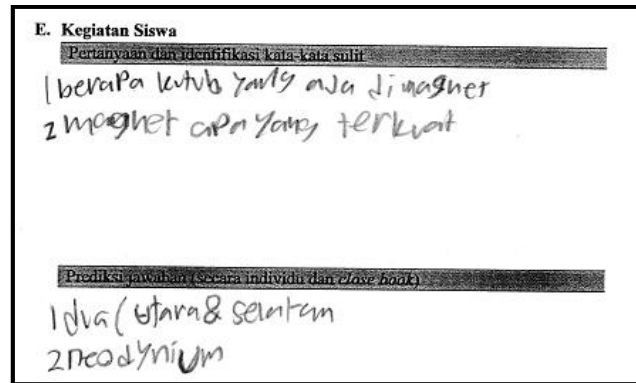 E. Kegiatan Siswa
Pertanyaan dan identifikasi kata-kata sulit
1 berapa kutub yang ada di magnet
2 magnet apa yang terkuat
Prediksi jawaban (secara individu dan close book)
1 dua (utara & selatan
2 neodynium